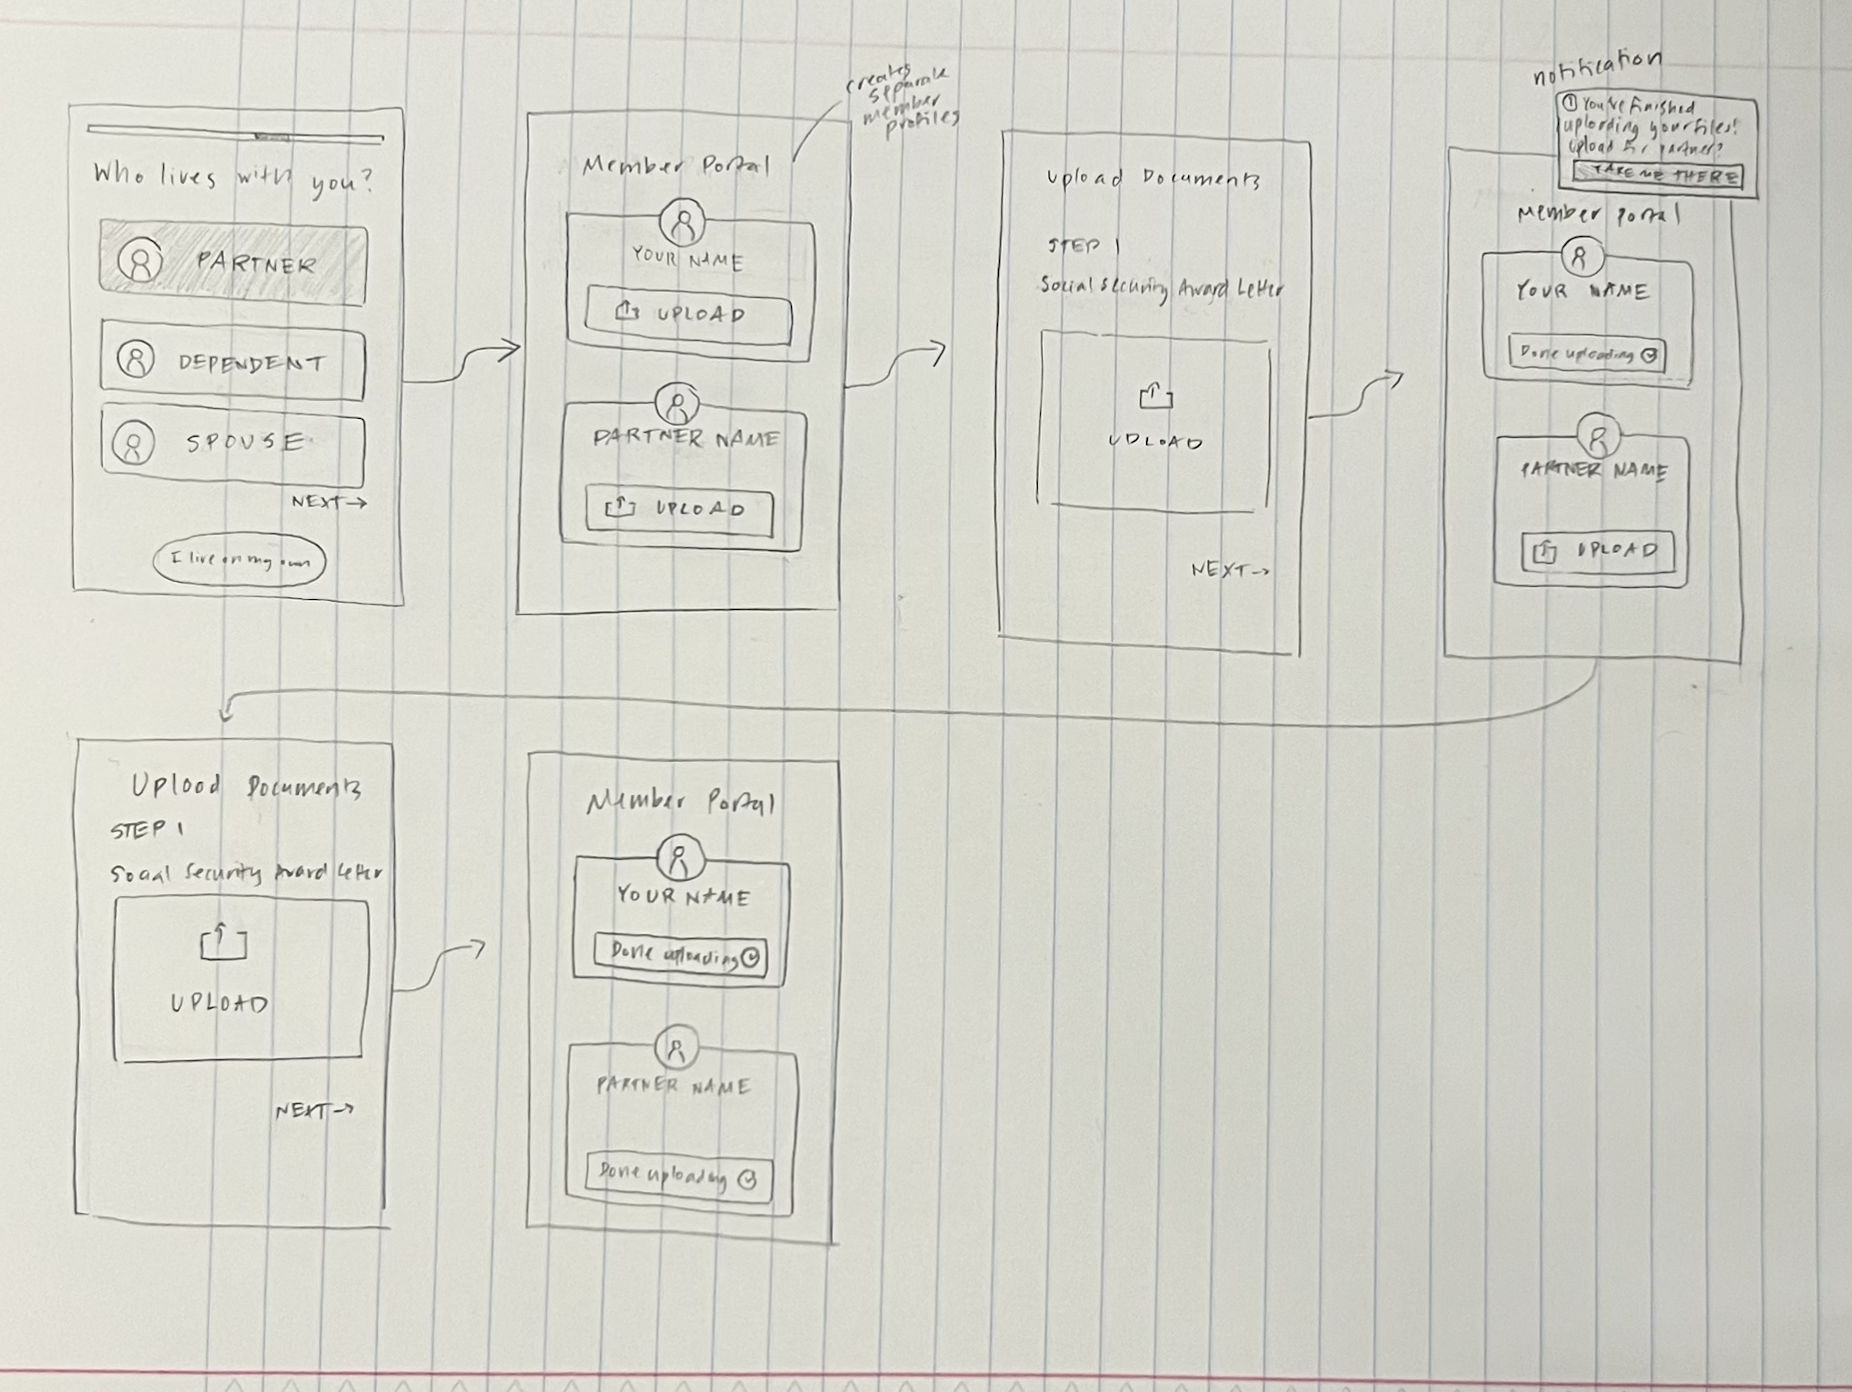 Who lives with you?
PARTNER
DEPENDENT
SPOUSE
NEXT→
I live on my own
creates
separate
member
profiles
Member Portal
YOUR NAME
UPLOAD
PARTNER NAME
UPLOAD
Upload Documents
STEP 1
Social Security Award Letter
UPLOAD
NEXT→
notification
You've finished
uploading your files!
Upload for partner?
TAKE ME THERE
Member Portal
YOUR NAME
Done uploading
PARTNER NAME
UPLOAD
Upload Documents
STEP 1
Social Security Award Letter
UPLOAD
NEXT→
Member Portal
YOUR NAME
Done uploading
PARTNER NAME
Done uploading